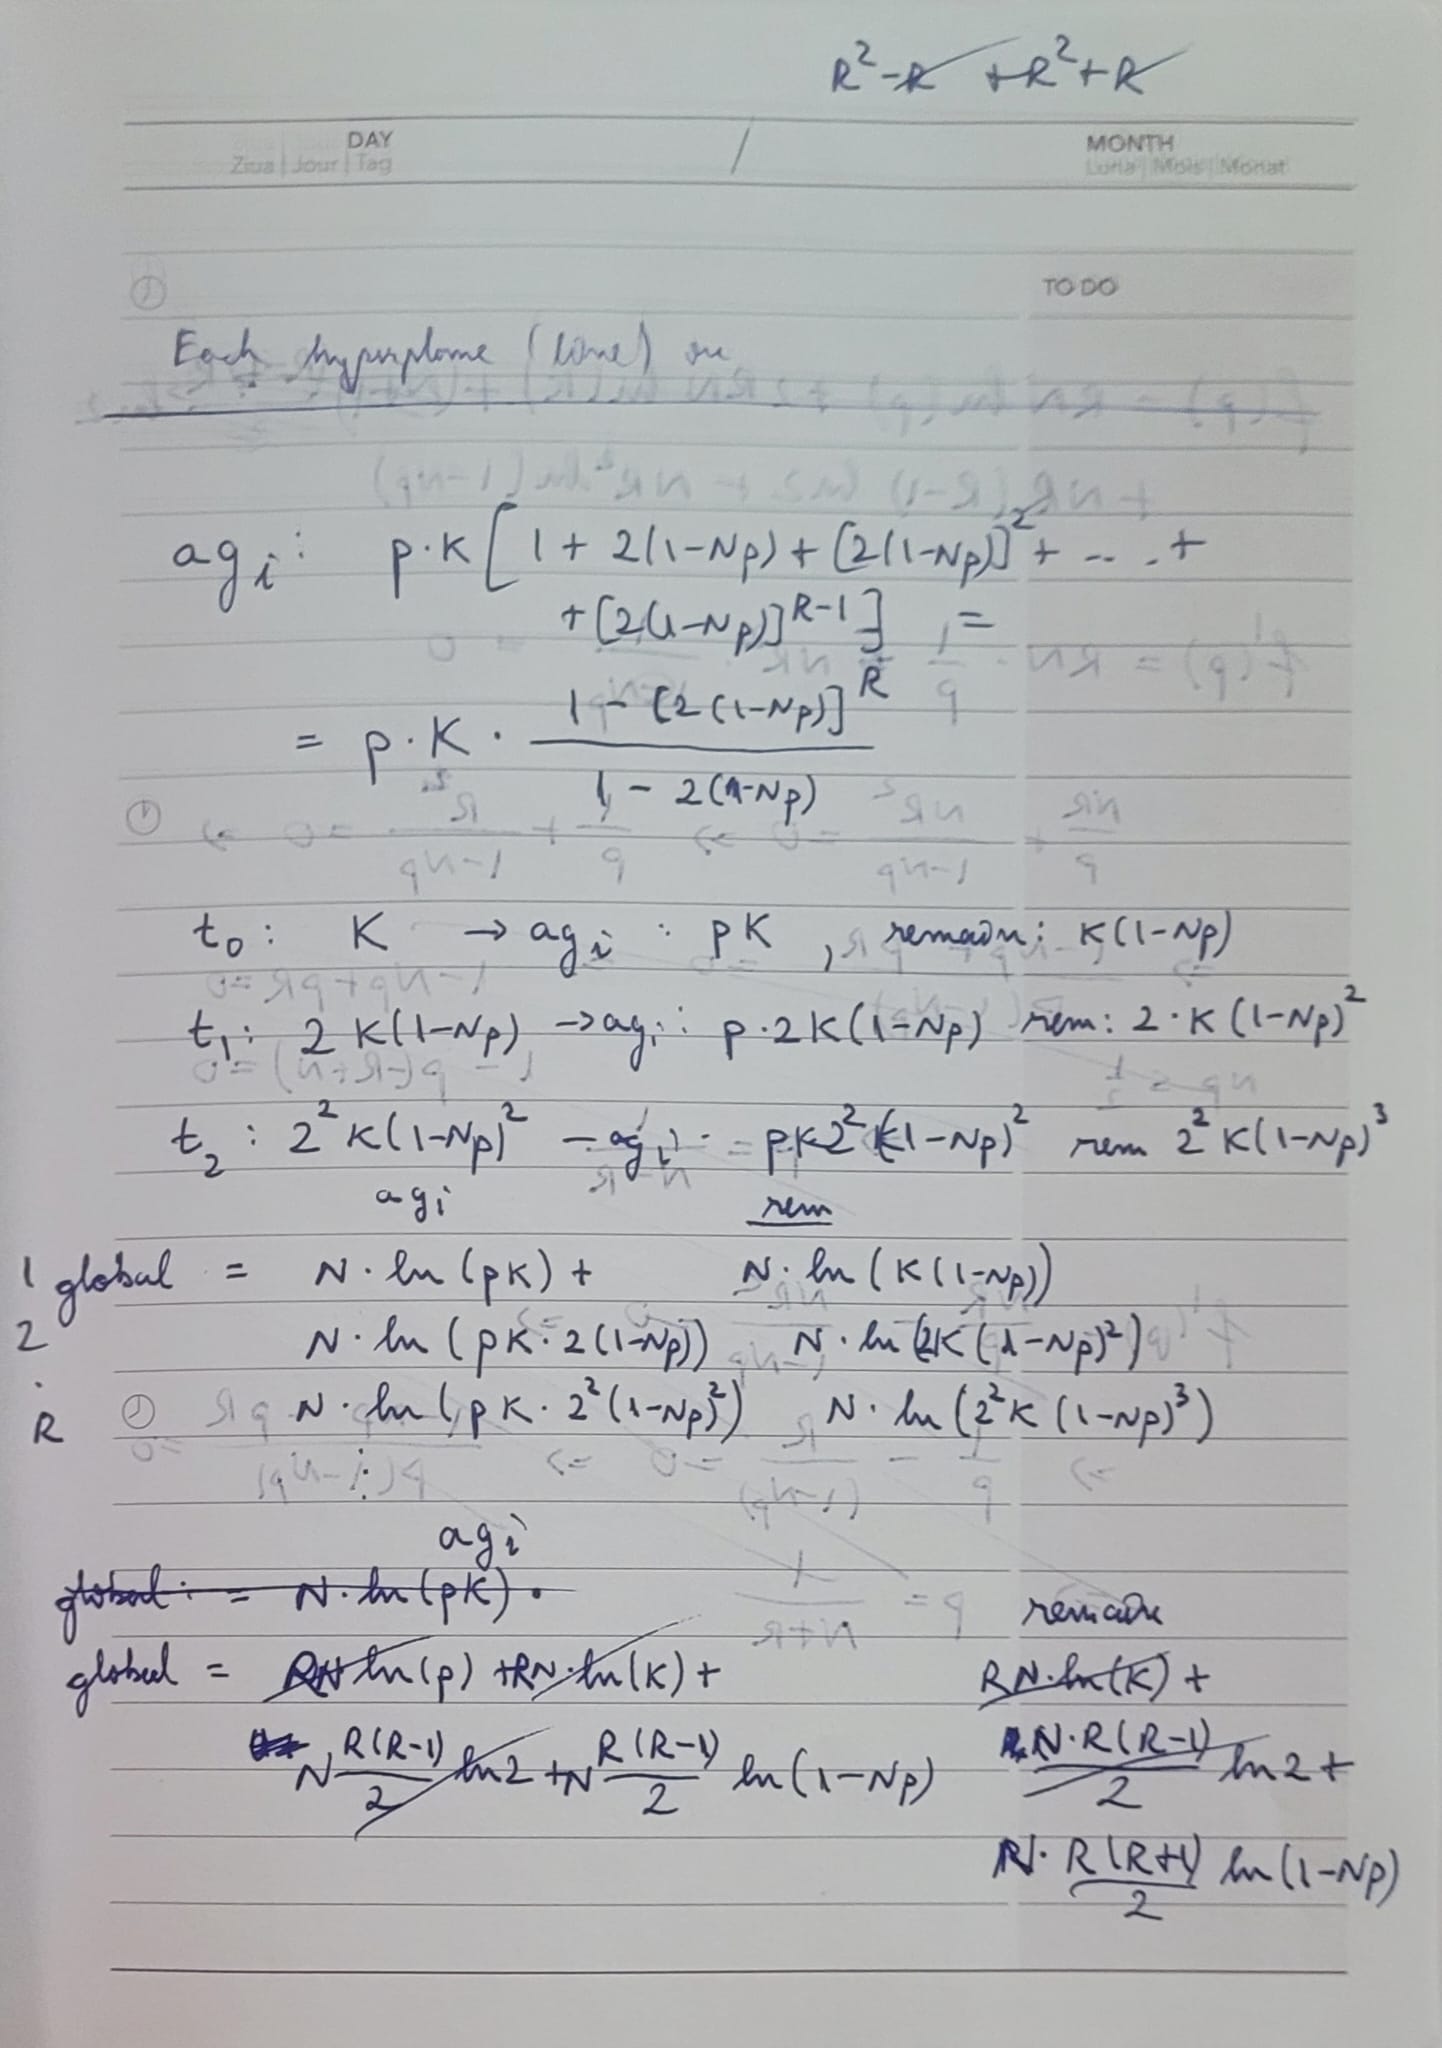 R²-R +R²+R
DAY / MONTH
Ziua | Jour | Tag Luna | Mois | Monat
TO DO
Each hyperplane (line) on
ag i : p·K [ 1 + 2(1-Np) + [2(1-Np)]² + ... +
+ [2(1-Np)]^{R-1} ] =
= p·K · \frac{1 - [2(1-Np)]^R}{1 - 2(1-Np)}
t₀ : K → ag i : pK , remain : K(1-Np)
t₁ : 2 K(1-Np) → ag i : p·2K(1-Np) rem : 2·K(1-Np)²
t₂ : 2² K(1-Np)² - ag i : = pK2²(1-Np)² rem 2² K(1-Np)³
ag i rem
1 global = N·ln(pK) + N·ln(K(1-Np))
2 N·ln(pK·2(1-Np)) N·ln(2K(1-Np)²)
.
R N·ln(pK·2²(1-Np)²) N·ln(2²K(1-Np)³)
⋮
ag i
global : = N·ln(pK) · remain
global = RN ln(p) + RN·ln(K) + RN·ln(K) +
N \frac{R(R-1)}{2} ln2 + N \frac{R(R-1)}{2} ln(1-Np) N·\frac{R(R-1)}{2} ln2 +
N·\frac{R(R+1)}{2} ln(1-Np)